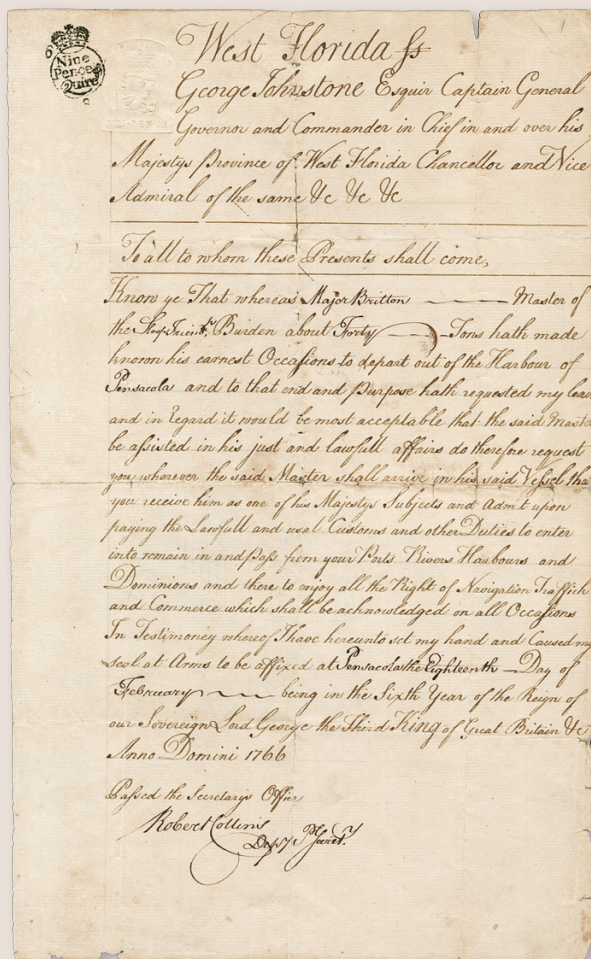 Nine
Pence
Quire
West Florida ss
George Johnstone Esquir Captain General
Governor and Commander in Chief in and over his
Majestys Province of West Florida Chancellor and Vice
Admiral of the same &c &c &c
To all to whom these Presents shall come,
Know ye That whereas Major Britton Master of
the Burden about Forty Tons hath made
known his earnest Occasions to depart out of the Harbour of
Pensacola and to that end and Purpose hath requested my leav
and in regard it would be most acceptable that the said Maste
be assisted in his just and lawfull affairs do therefore request
you wherever the said Master shall arrive in his said Vessel tha
you receive him as one of his Majestys Subjects and Admit upon
paying the Lawfull and usal Customs and other Duties to enter
into remain in and pass from your Ports Rivers Harbours and
Dominions and there to enjoy all the Right of Navigation Traffick
and Commerce which shall be acknowledged on all Occasions
In Testimoney whereof I have hereunto set my hand and Caused my
seal at Arms to be affixed at Pensacola the Eighteenth Day of
February being in the Sixth Year of the Reign of
our Sovereign Lord George the Third King of Great Britain &c
Anno Domini 1766
Passed the Secretarys Office
Robert Collins
Depy